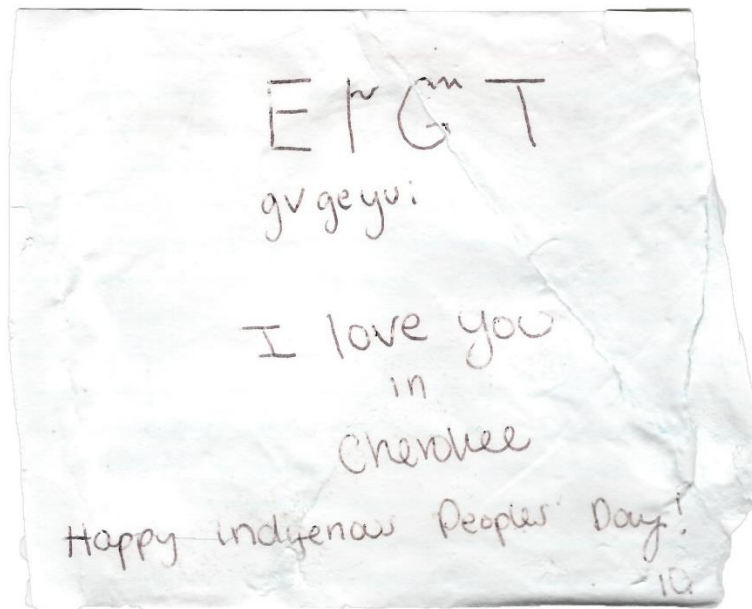 ᎬᎨᏳᎢ
gv geyui
I love you
in
Cherokee
Happy indigenous Peoples Day!